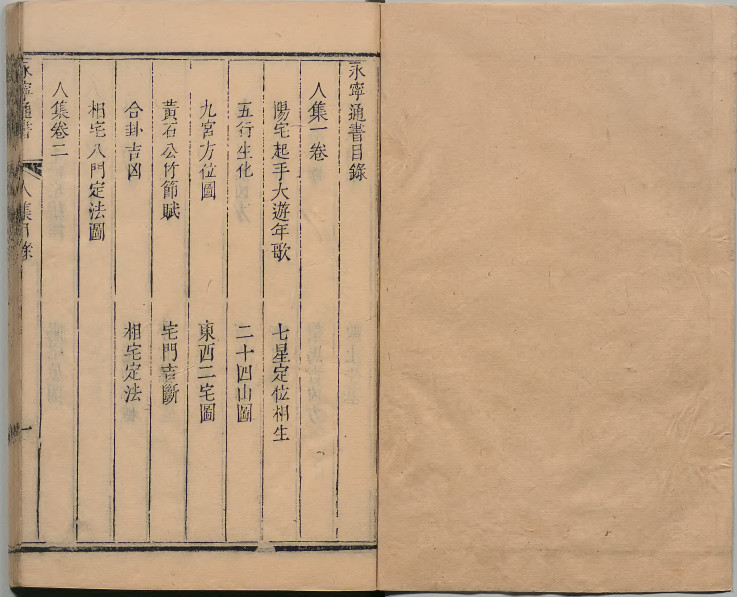 永寧通書目錄
人集一卷
陽宅起手大遊年歌 七星定位相生
五行生化 二十四山圖
九宮方位圖 東西二宅圖
黃石公竹節賦 宅門吉斷
合卦吉凶 相宅定法
相宅八門定法圖
人集卷二
永寧通書 人集目錄 一